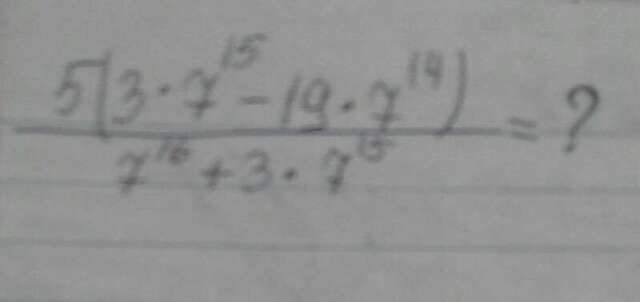 5(3·7¹⁵ - 19·7¹⁴)
7¹⁶ + 3·7¹⁵ = ?